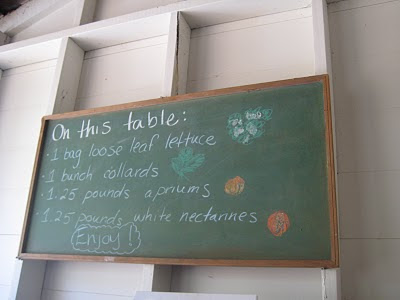 On this table:
· 1 bag loose leaf lettuce
· 1 bunch collards
· 1.25 pounds apriums
· 1.25 pounds white nectarines
Enjoy!